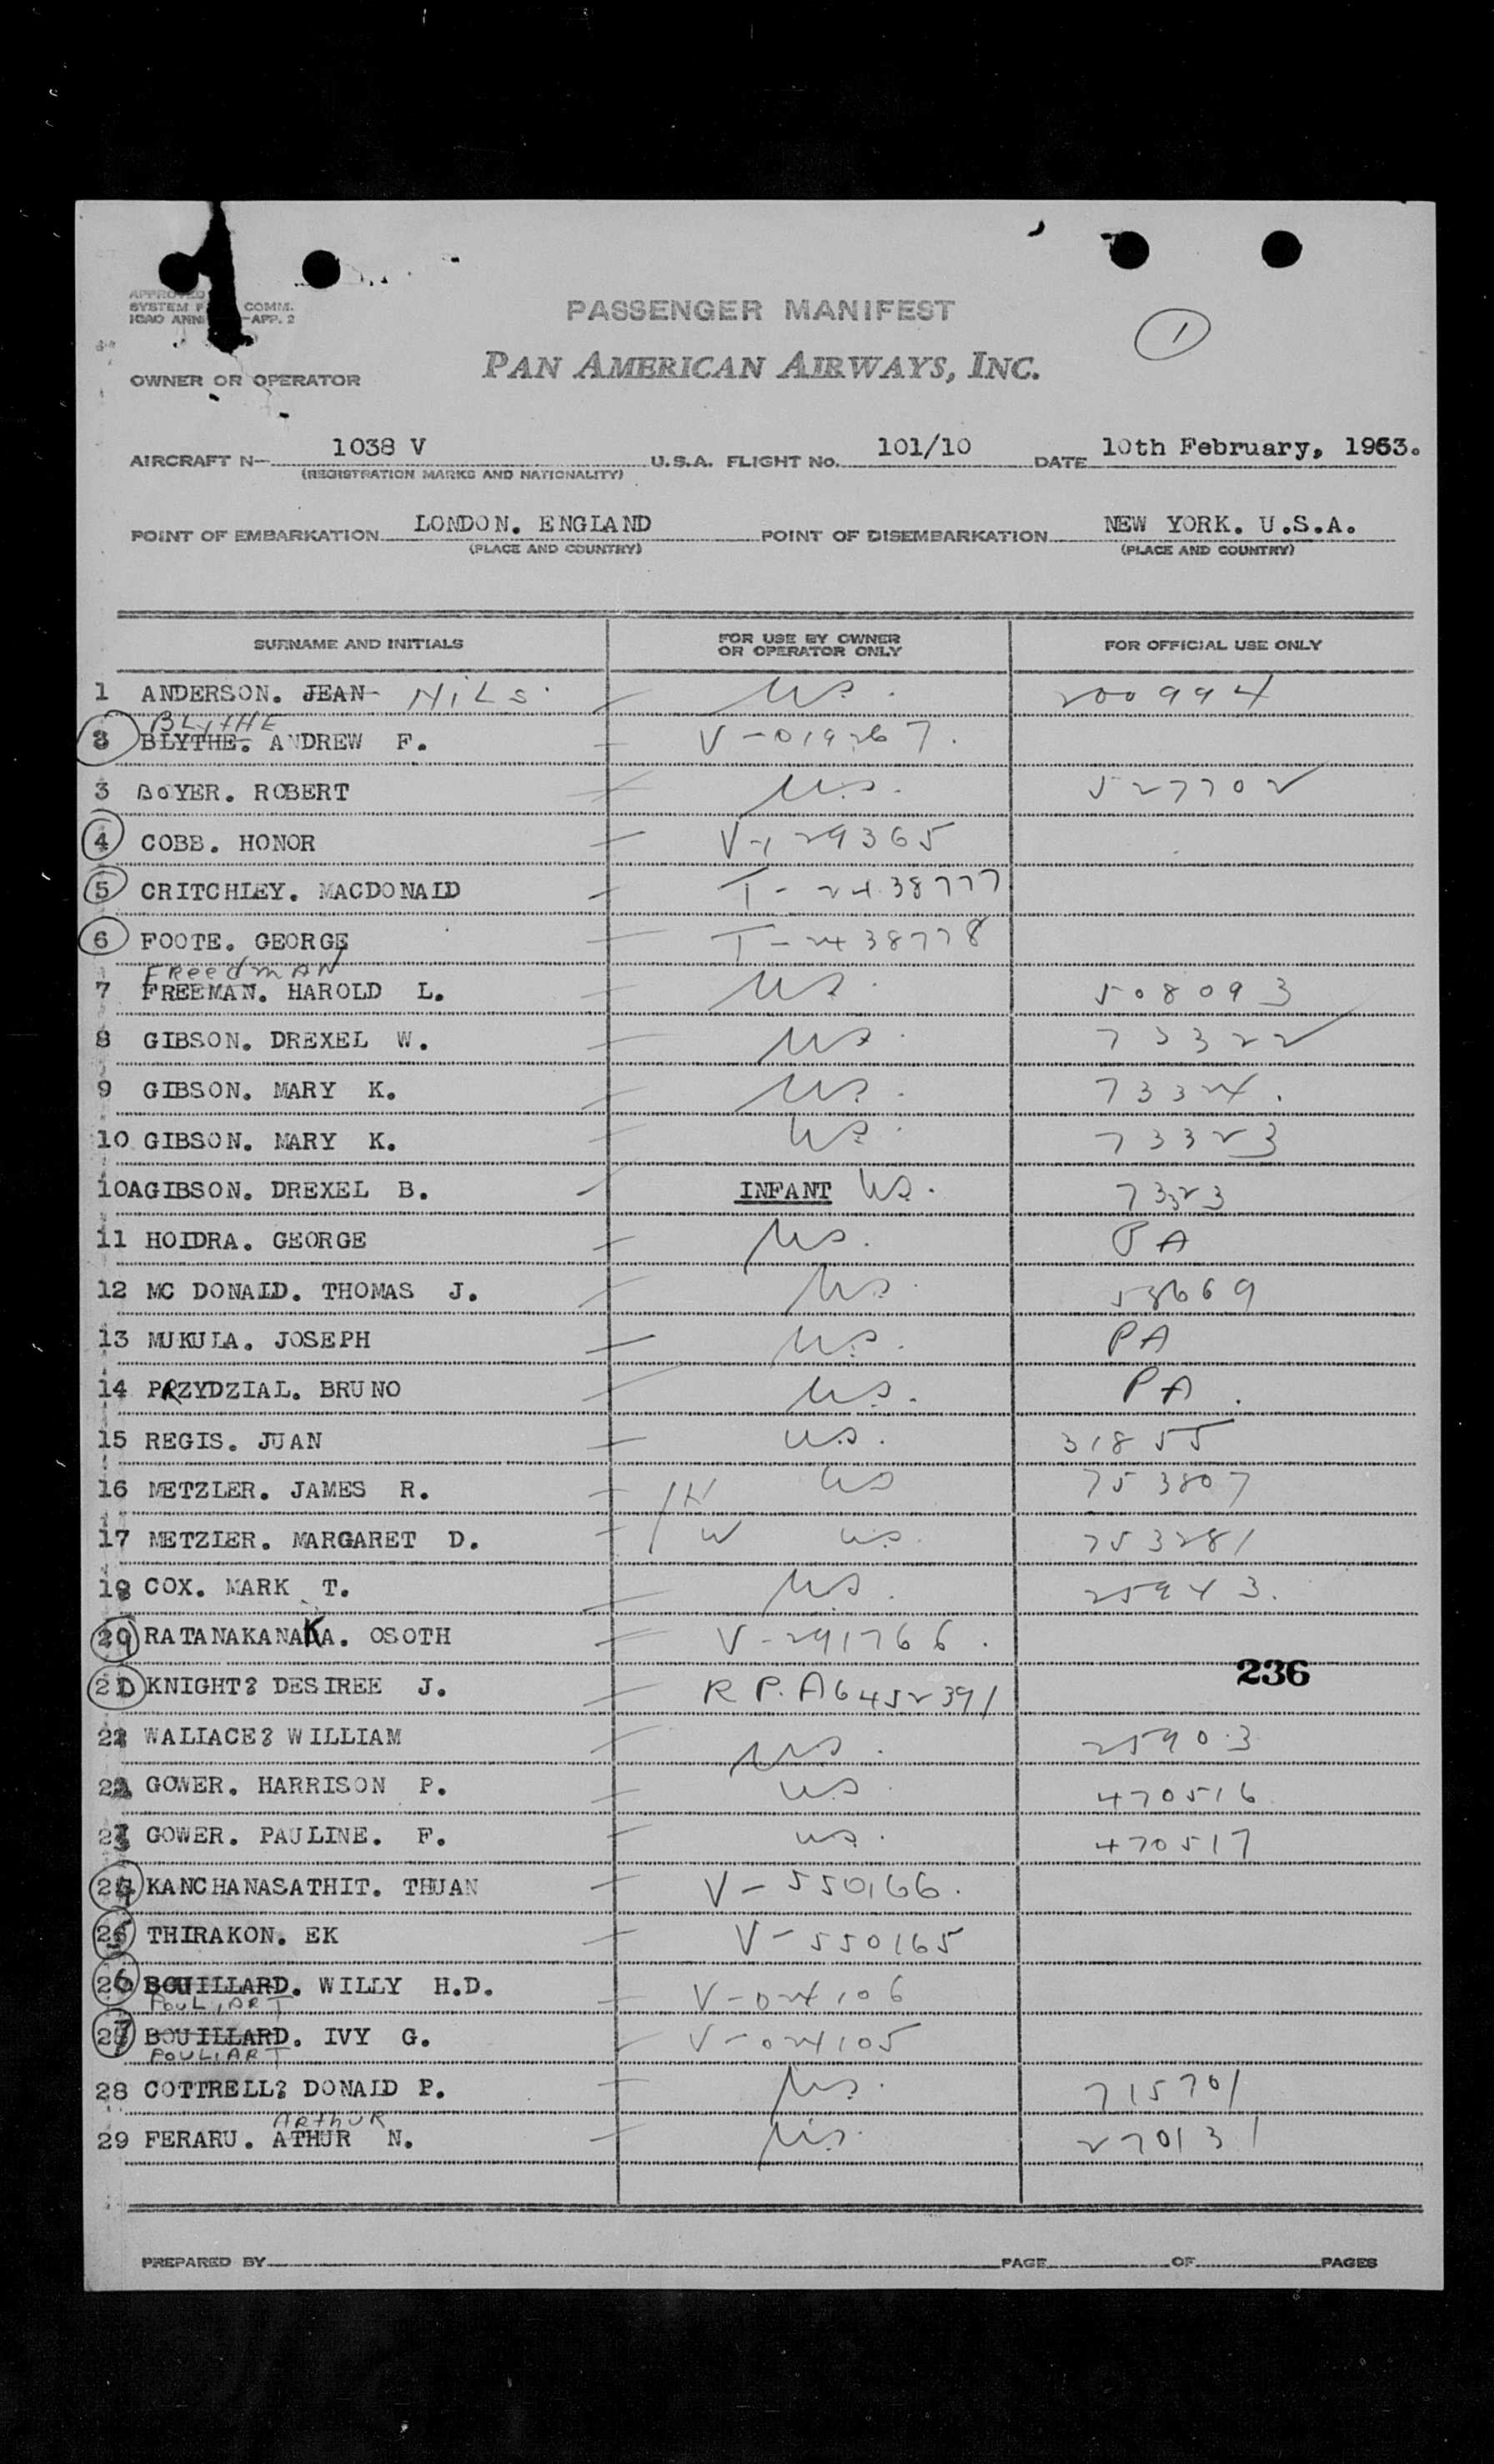 APPROVED
SYSTEM F COMM.
ICAO ANN -APP. 2
PASSENGER MANIFEST
1
PAN AMERICAN AIRWAYS, INC.
OWNER OR OPERATOR
AIRCRAFT N- 1038 V U.S.A. FLIGHT No. 101/10 DATE 10th February, 1953.
(REGISTRATION MARKS AND NATIONALITY)
POINT OF EMBARKATION LONDON. ENGLAND POINT OF DISEMBARKATION NEW YORK. U.S.A.
(PLACE AND COUNTRY) (PLACE AND COUNTRY)
SURNAME AND INITIALS FOR USE BY OWNER OR OPERATOR ONLY FOR OFFICIAL USE ONLY
1 ANDERSON. JEAN NiLs US. 200994
BLyTHE
BLYTHE. ANDREW F. V-019267.
3 BOYER. ROBERT U.S. 527702
4 COBB. HONOR V-129365
5 CRITCHLEY. MACDONALD T-2438777
6 FOOTE. GEORGE T-2438778
FReedmAN
7 FREEMAN. HAROLD L. US. 508093
8 GIBSON. DREXEL W. US. 73322
9 GIBSON. MARY K. US. 73324.
10 GIBSON. MARY K. US. 73323
10A GIBSON. DREXEL B. INFANT US. 73323
11 HOIDRA. GEORGE US. PA
12 MC DONALD. THOMAS J. US. 58669
13 MUKULA. JOSEPH U.S. PA
14 PRZYDZIAL. BRUNO US. PA.
15 REGIS. JUAN U.S. 31855
16 METZLER. JAMES R. H US 753807
17 METZLER. MARGARET D. W U.S. 753281
18 COX. MARK T. US. 25943.
RATANAKANAKA. OSOTH V-291766.
KNIGHT? DESIREE J. R P. A6452391
236
WALLACE? WILLIAM US. 25903
GOWER. HARRISON P. U.S. 470516
GOWER. PAULINE. F. US. 470517
24 KANCHANASATHIT. THUAN V-550166.
25 THIRAKON. EK V-550165
26 BOUILLARD. WILLY H.D. V-024106
POULIART
27 BOUILLARD. IVY G. V-024105
POULIART
28 COTTRELL? DONALD P. US. 715701
ARthUR
29 FERARU. ATHUR N. US. 270131
PREPARED BY PAGE OF PAGES